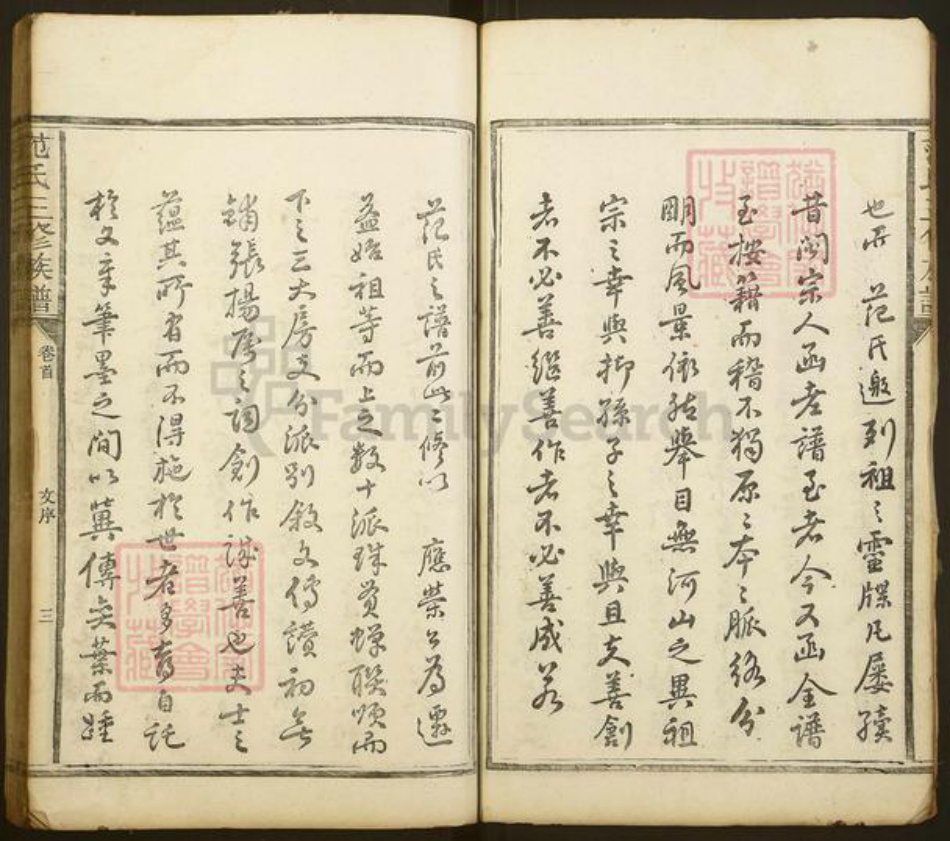 也耶 范氏邀列祖之靈牒凡屢續
昔闵宗人函老譜至者今又函全譜
至按籍而稽不獨原之本之脈络分
明而風景依然舉目無河山之異祖
宗之幸與抑孫子之幸與且夫善創
者不必善繼善作者不必善成若
范氏之譜前此二修以 應榮公為遷
益始祖等而上之数十派珠貫蟬聯順而
下之三大房支分派别敘文傳讚初無
鋪張揚厲之詞創作誠善也夫士之
蕴其所有而不得施於世者多喜自託
於文章筆墨之間以冀傳奕葉而踵
范氏三修族譜
卷首
文序
三
FamilySearch